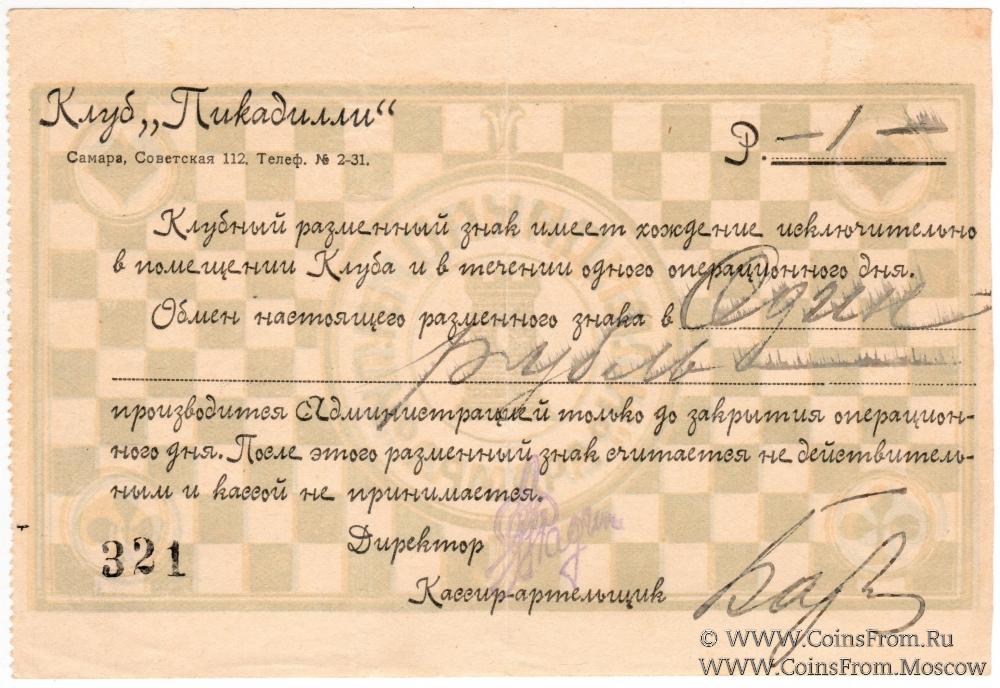 Клуб „Пикадилли“
Самара, Советская 112. Телеф. № 2-31.
Р. -1-
Клубный разменный знак имеет хождение исключительно
в помещении Клуба и в течении одного операционного дня.
Обмен настоящего разменного знака в Один
рубль
производится Администрацией только до закрытия операцион-
ного дня. После этого разменный знак считается не действитель-
ным и кассой не принимается.
321
Директор
Кассир-артельщик
© WWW.CoinsFrom.Ru
WWW.CoinsFrom.Moscow